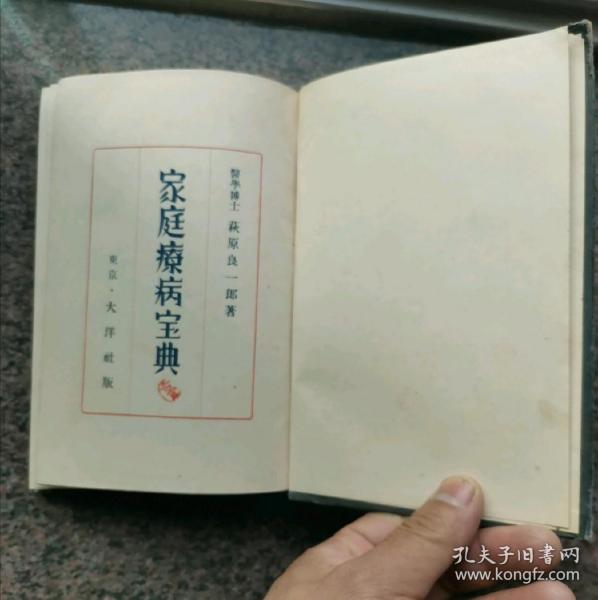 醫學博士 萩原良一郎著
家庭療病宝典
東京・大洋社版
孔夫子旧书网
www.kongfz.com